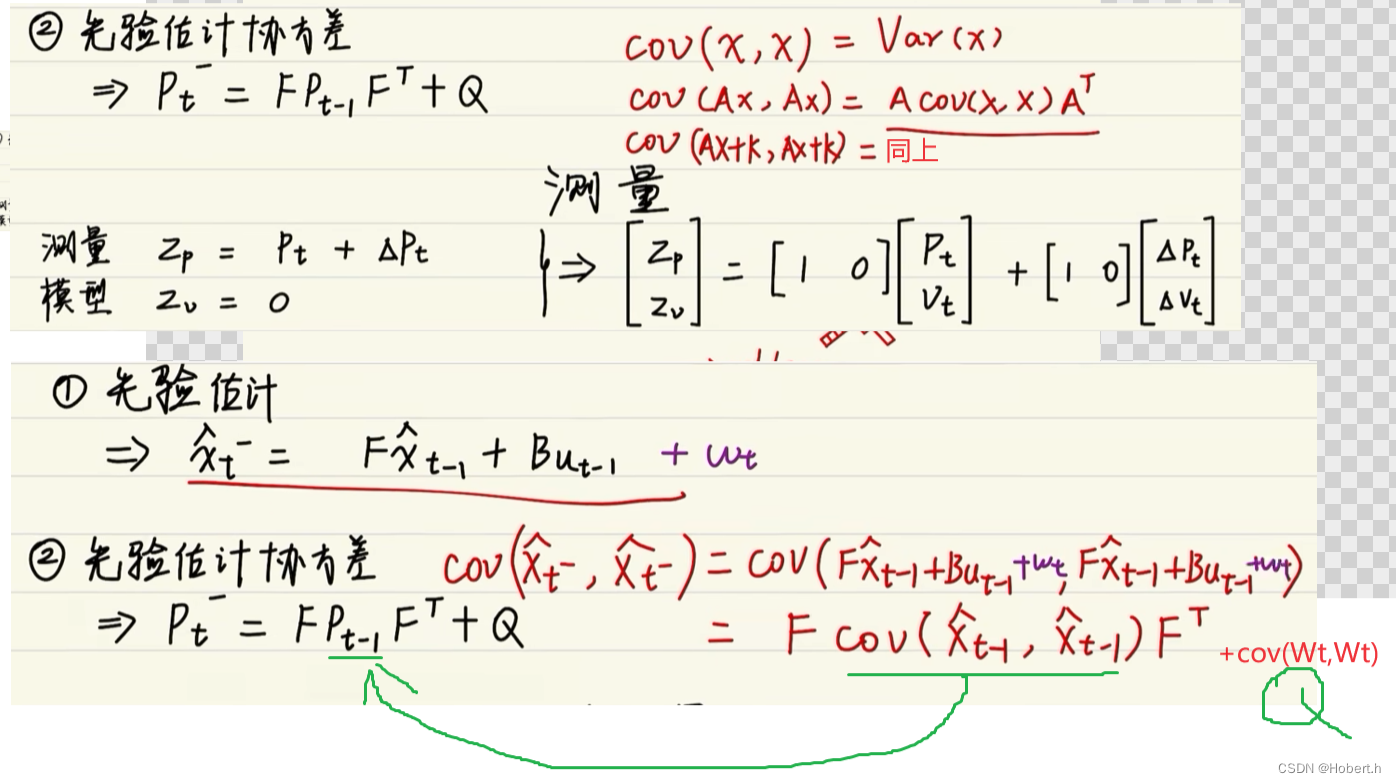 ② 先验估计协方差
⇒ Pₜ⁻ = FPₜ₋₁Fᵀ + Q
cov(x,x) = Var(x)
cov(Ax, Ax) = A cov(x,x)Aᵀ
cov(Ax+k, Ax+k) = 同上
测量
测量 Zp = Pₜ + ΔPₜ
模型 Zv = 0
⇒ [Zp Zv] = [1 0] [Pₜ Vₜ] + [1 0] [ΔPₜ ΔVₜ]
① 先验估计
⇒ x̂ₜ⁻ = Fx̂ₜ₋₁ + Buₜ₋₁ + wₜ
② 先验估计协方差
cov(x̂ₜ⁻, x̂ₜ⁻) = cov(Fx̂ₜ₋₁+Buₜ₋₁+wₜ, Fx̂ₜ₋₁+Buₜ₋₁+wₜ)
⇒ Pₜ⁻ = FPₜ₋₁Fᵀ + Q
= F cov(x̂ₜ₋₁, x̂ₜ₋₁)Fᵀ
+cov(Wt,Wt)
CSDN @Hobert.h